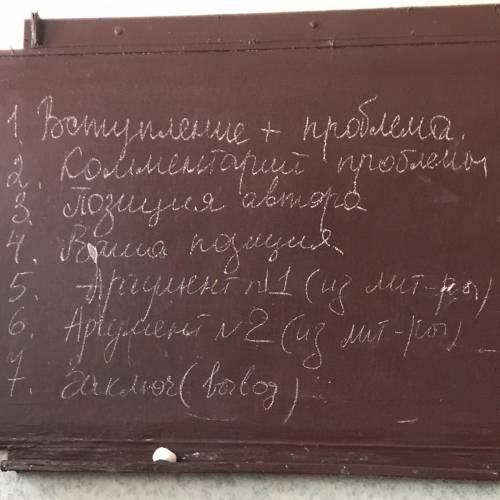 1. Вступление + проблема.
2. Комментарий проблемы
3. Позиция автора
4. Ваша позиция
5. Аргумент №1 (из лит-ры)
6. Аргумент №2 (из лит-ры)
7. Заключ (вывод)